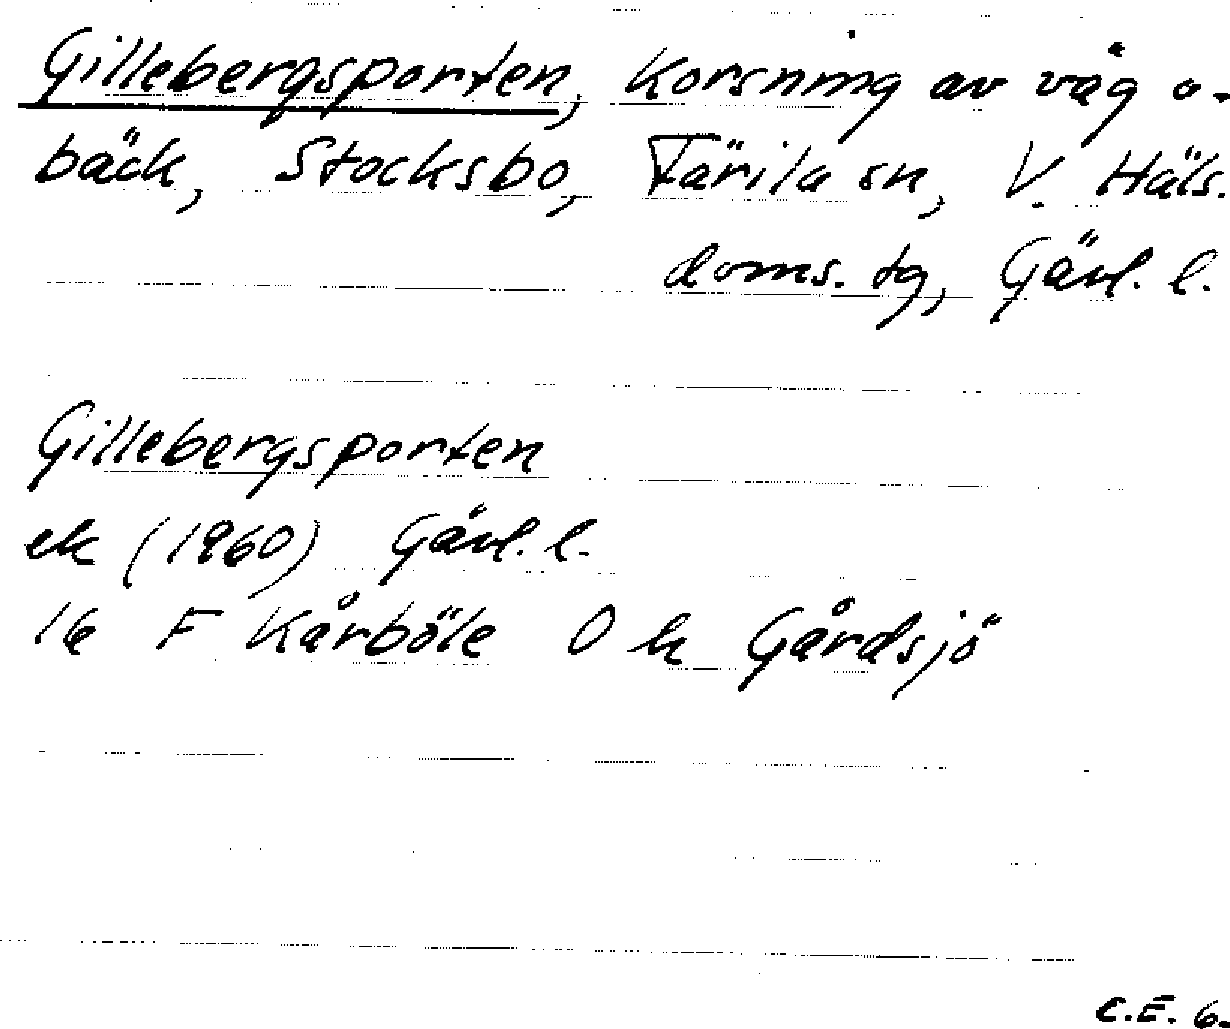 Gillebergsporten, korsning av väg o.
bäck, Stocksbo, Färila sn, V. Häls.
doms. tg, Gävl. l.
Gillebergsporten
ek (1960) Gävl. l.
16 F Kårböle O k Gårdsjö
C.E. 6